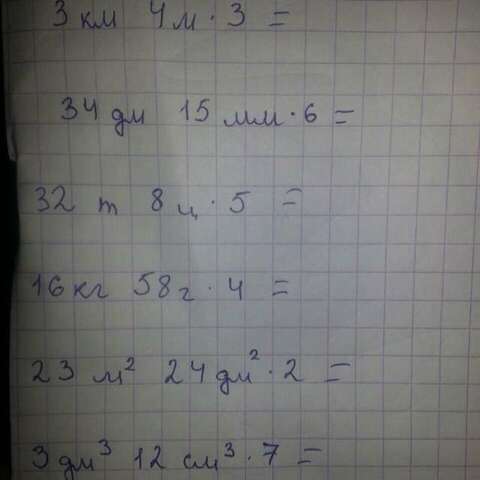 3 км 4 м · 3 =
34 дм 15 мм · 6 =
32 т 8 ц · 5 =
16 кг 58 г · 4 =
23 м² 24 дм² · 2 =
3 дм³ 12 см³ · 7 =